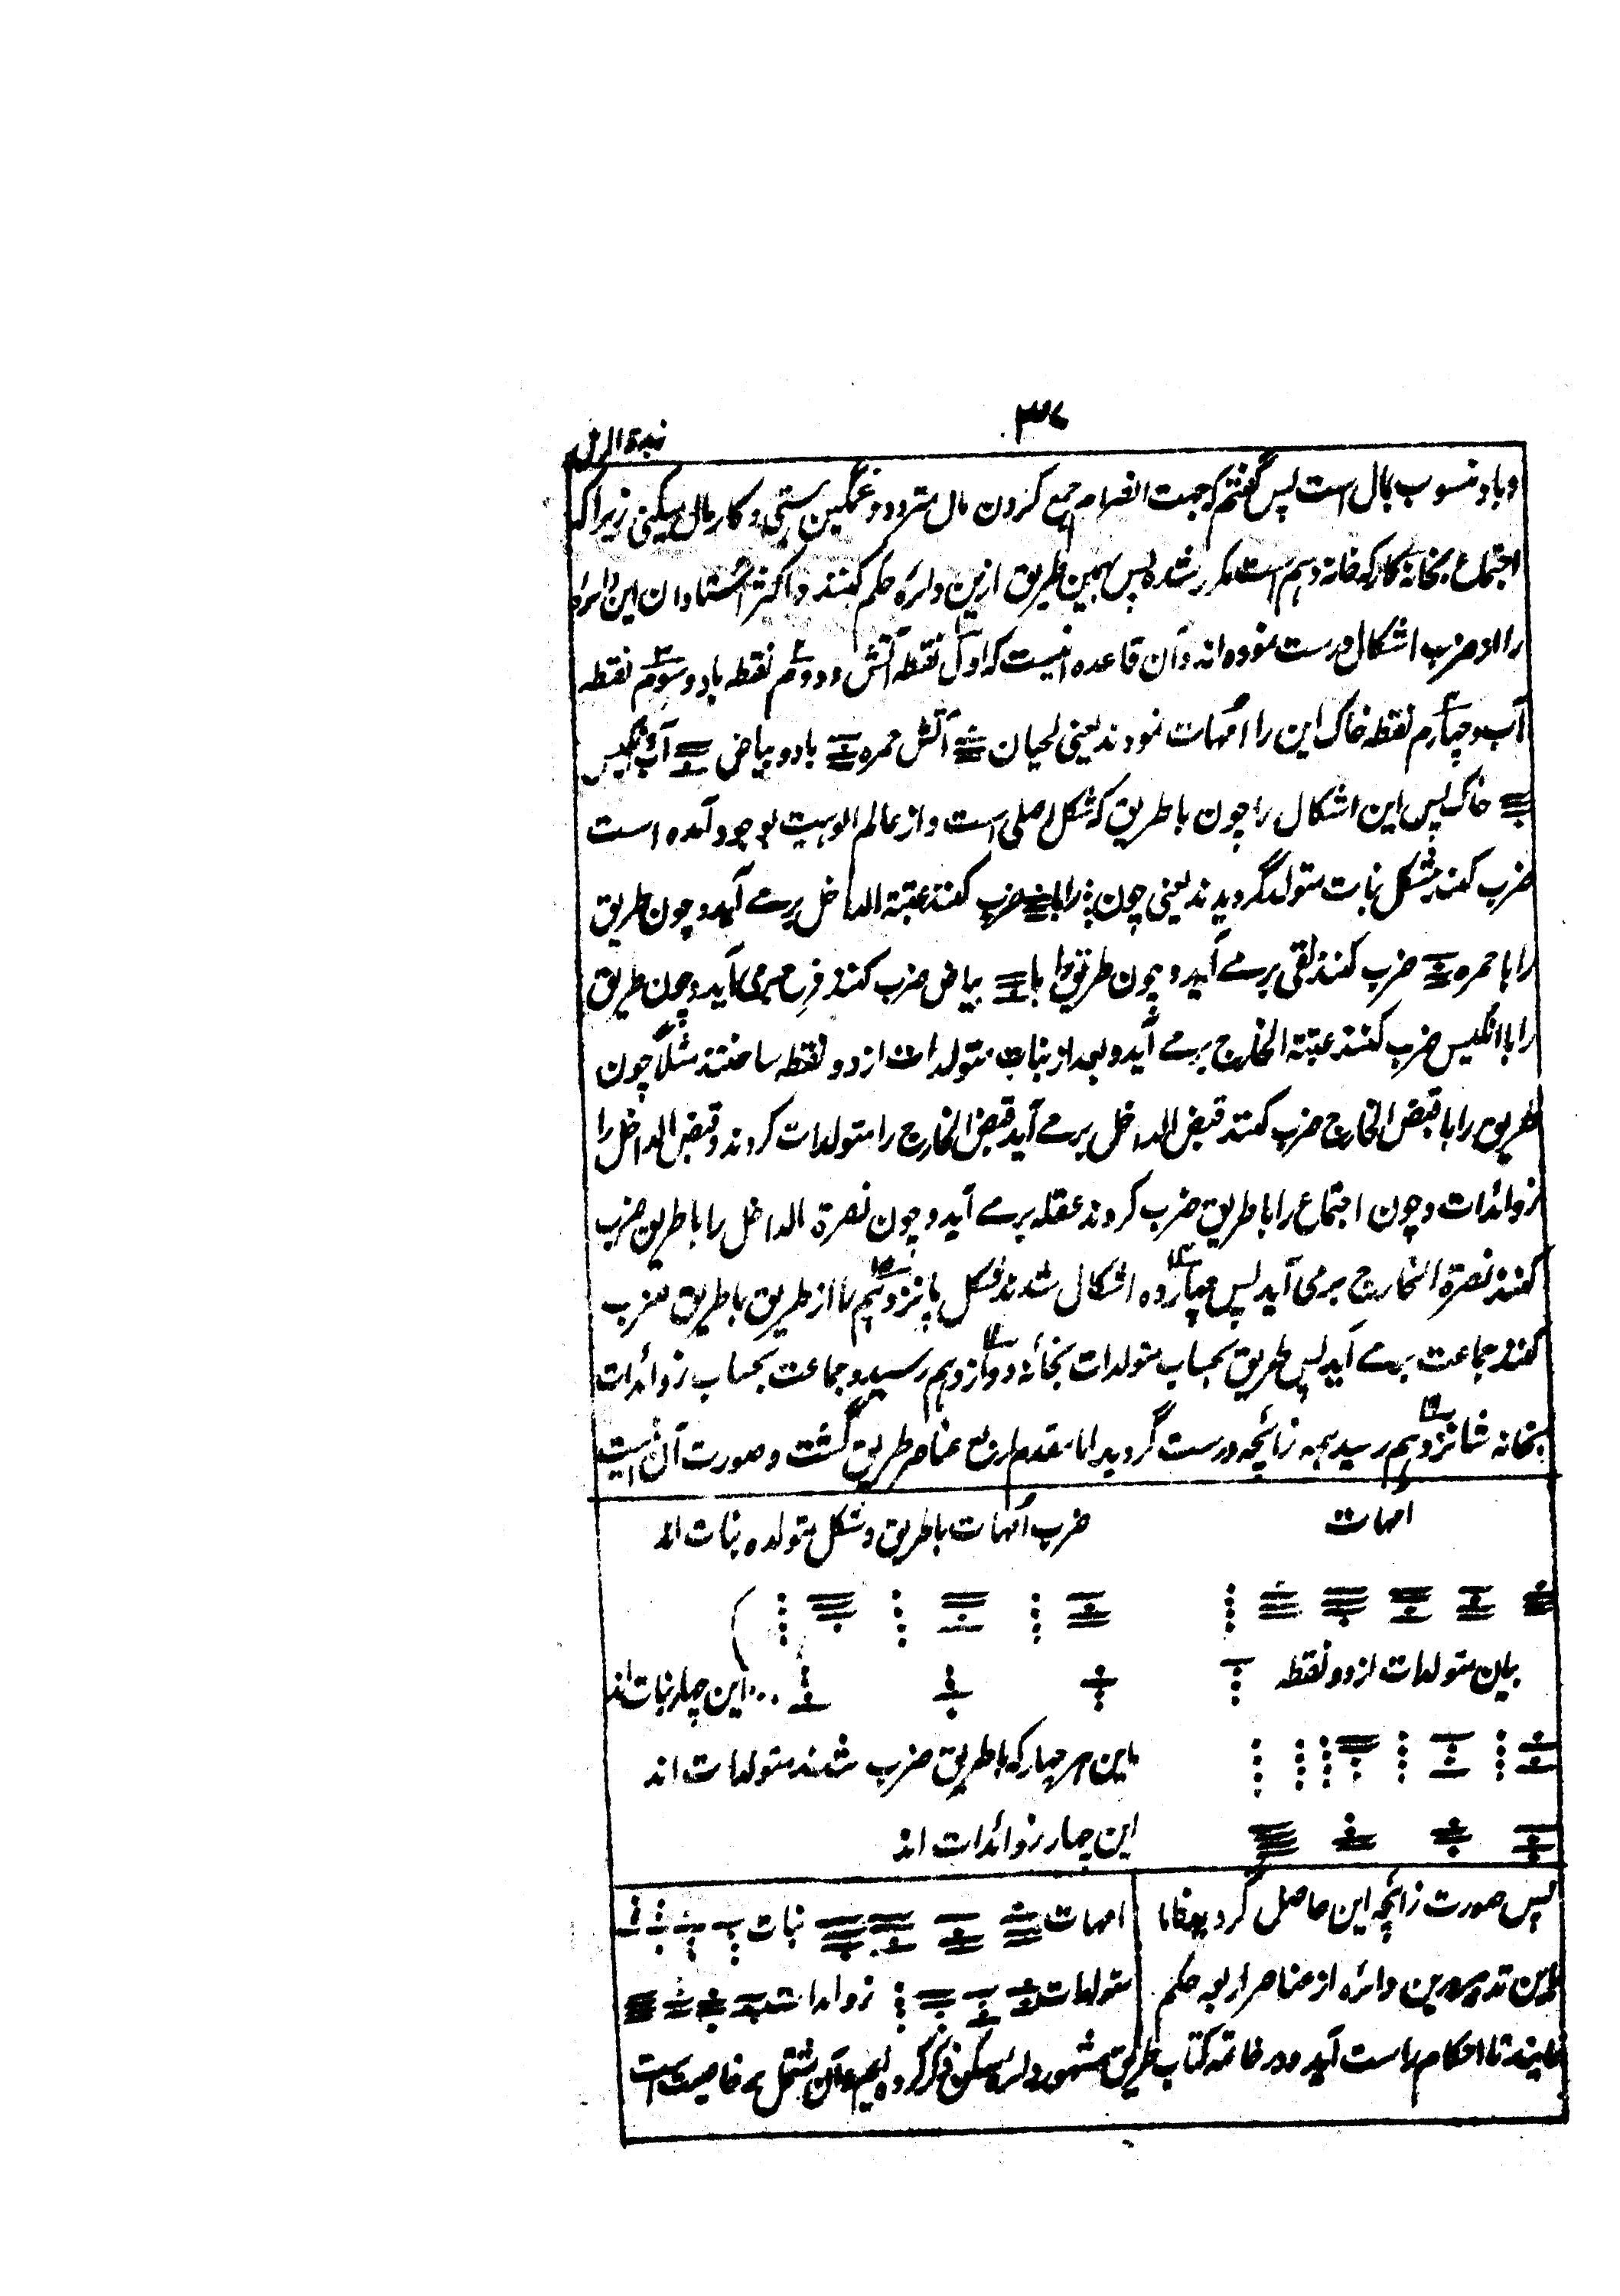 ۳۷
زبدة الرمل
و باد منسوب بمال است پس گفتم که جهت انصرام جمع کردن مال متردد و غمگین هستی و کار مال میکنی زیراکه
اجتماع بخانه کار که خانه دهم است مکرر شده پس بهمین طریق ازین دائره حکم کنند و اکثر استادان این دائره
را از ضرب اشکال درست نموده اند و آن قاعده اینست که اول نقطه آتش و دوم نقطه باد و سوم نقطه
آب و چهارم نقطه خاک این را امهات نمودند یعنی لحیان آتش حمره باد و بیاض آب انگیس
خاک پس این اشکال را چون با طریق که شکل اصلی است و از عالم الوهیت بوجود آمده است
ضرب کنند شکل بنات متولد گردیدند یعنی چون را با ضرب کنند عتبة الداخل برمے آید و چون طریق
را با حمره ضرب کنند نقی برمے آید و چون طریق را با بیاض ضرب کنند فرح برمی آید و چون طریق
را با انگیس ضرب کنند عتبة الخارج برمے آید و بعد از بنات متولدات از دو نقطه ساختند مثلاً چون
طریق را با قبض الخارج ضرب کنند قبض الداخل برمے آید قبض الخارج را متولدات کردند و قبض الداخل را
زوائدات و چون اجتماع را با طریق ضرب کردند عقله برمے آید و چون نصرة الداخل را با طریق ضرب
کنند نصرة الخارج برمی آید پس چهارده اشکال شدند شکل پانزدهم را از طریق با طریق ضرب
کنند جماعت برمے آید پس طریق بحساب متولدات بخانه دوازدهم رسید و جماعت بحساب زوائدات
بخانه شانزدهم رسید همه زائچه درست گردید اما مقدم اربع عناصر طریق گشت و صورت آن اینست
امهات
ضرب امهات با طریق و شکل متولده بنات اند
بیان متولدات از دو نقطه
این چهار بنات اند
این هر چهار که با طریق ضرب شدند متولدات اند
این چهار زوائدات اند
پس صورت زائچه این حاصل گردید
امهات بنات
باین تدبیر درین دائره از عناصر اربعه حکم
متولدات زوائدات
نمایند تا احکام راست آید و در خاتمه کتاب طریق مشهور دائره سکن ذکر کرده ایم و آن مشتمل بر خاصیت است